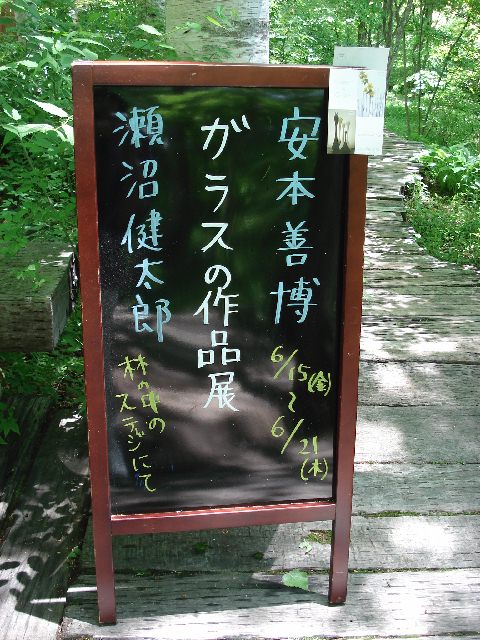 安本善博
6/15(金)
〜
6/21
(木)
ガラスの作品展
瀬沼健太郎
林の中の
ステーションにて